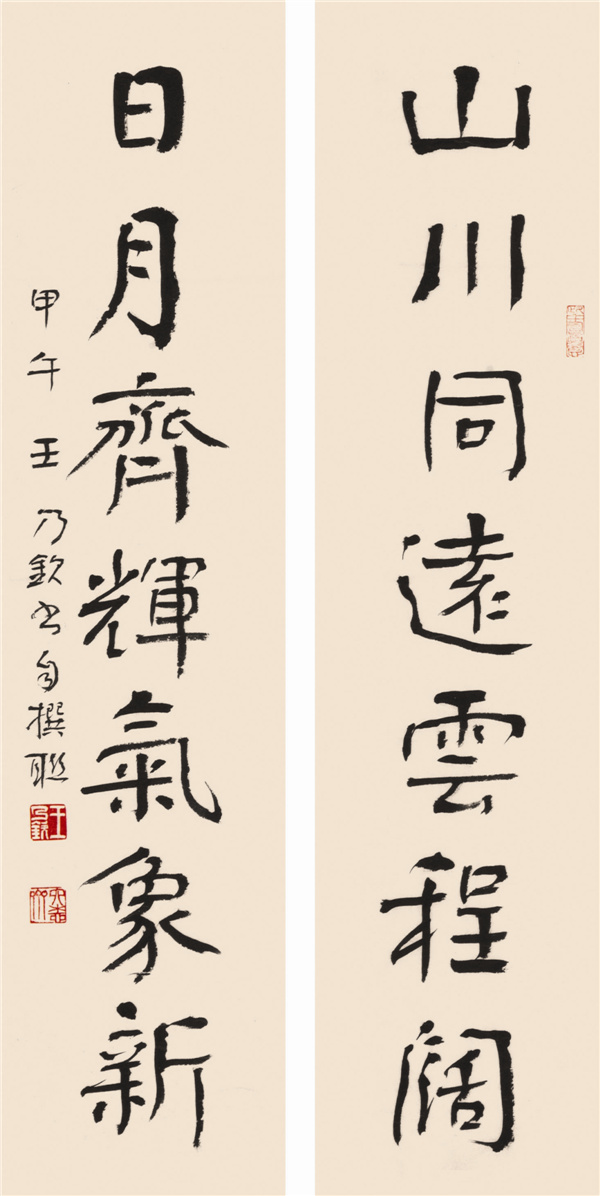 山川同遠雲程闊
日月齊輝氣象新
甲午王乃欽書自撰聯
王乃欽